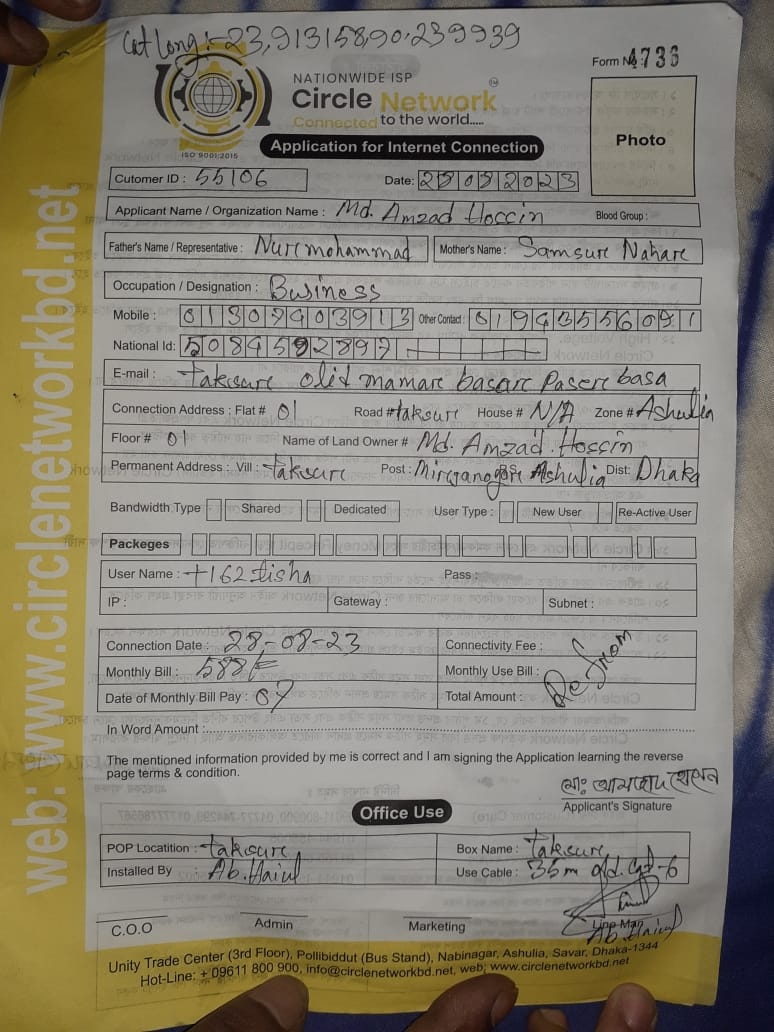 Lat Long:- 23,913158,90.239939
Form No: 4736
NATIONWIDE ISP
Circle Network
Connected to the world.....
ISO 9001:2015
Application for Internet Connection
Photo
Cutomer ID : 55106
Date: 28082023
Applicant Name / Organization Name : Md. Amzad Hossin Blood Group :
Father's Name / Representative : Nurmohammad Mother's Name : Samsure Nahare
Occupation / Designation : Business
Mobile : 01307403913 Other Contact : 01943556091
National Id: 5084592897
E-mail : taksure olit mamare basare Pasere basa
Connection Address : Flat # 01 Road # taksure House # N/A Zone # Ashulia
Floor # 01 Name of Land Owner # Md. Amzad Hossin
Permanent Address : Vill : taksure Post : PS: Ashulia Dist: Dhaka
Bandwidth Type Shared Dedicated User Type : New User Re-Active User
Packeges
User Name : +162tisha Pass :
IP : Gateway : Subnet :
Connection Date : 28-08-23 Connectivity Fee :
Monthly Bill : 588/= Monthly Use Bill :
Date of Monthly Bill Pay : 07 Total Amount :
In Word Amount :
The mentioned information provided by me is correct and I am signing the Application learning the reverse
page terms & condition.
মোঃ আমজাদ হোসেন
Applicant's Signature
Office Use
POP Locatition : taksure Box Name : taksure
Installed By : Ab. Haiul Use Cable : 35m old. Cat-6
C.O.O Admin Marketing Line Man
Ab. Haiul
Unity Trade Center (3rd Floor), Pollibiddut (Bus Stand), Nabinagar, Ashulia, Savar, Dhaka-1344
Hot-Line: + 09611 800 900, info@circlenetworkbd.net, web; www.circlenetworkbd.net
web: www.circlenetworkbd.net